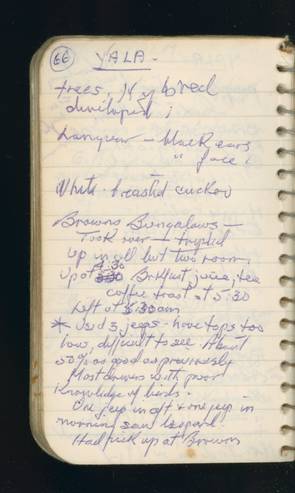 66 YALA -
trees,
developed;
Langur - black ears
" face;
White-breasted cuckoo
Browns Bungalows -
Took over - tripled
up in all but two rooms
up at 4:30 Brkfast, juice, tea
coffee toast at 5:30
Left at 5:30am
* Used 3 jeeps - have tops too
low, difficult to see. About
50% as good as previously
Most drivers with poor
knowledge of birds.
One jeep in aft & one jeep in
morning saw leopard
Had pick up at Browns